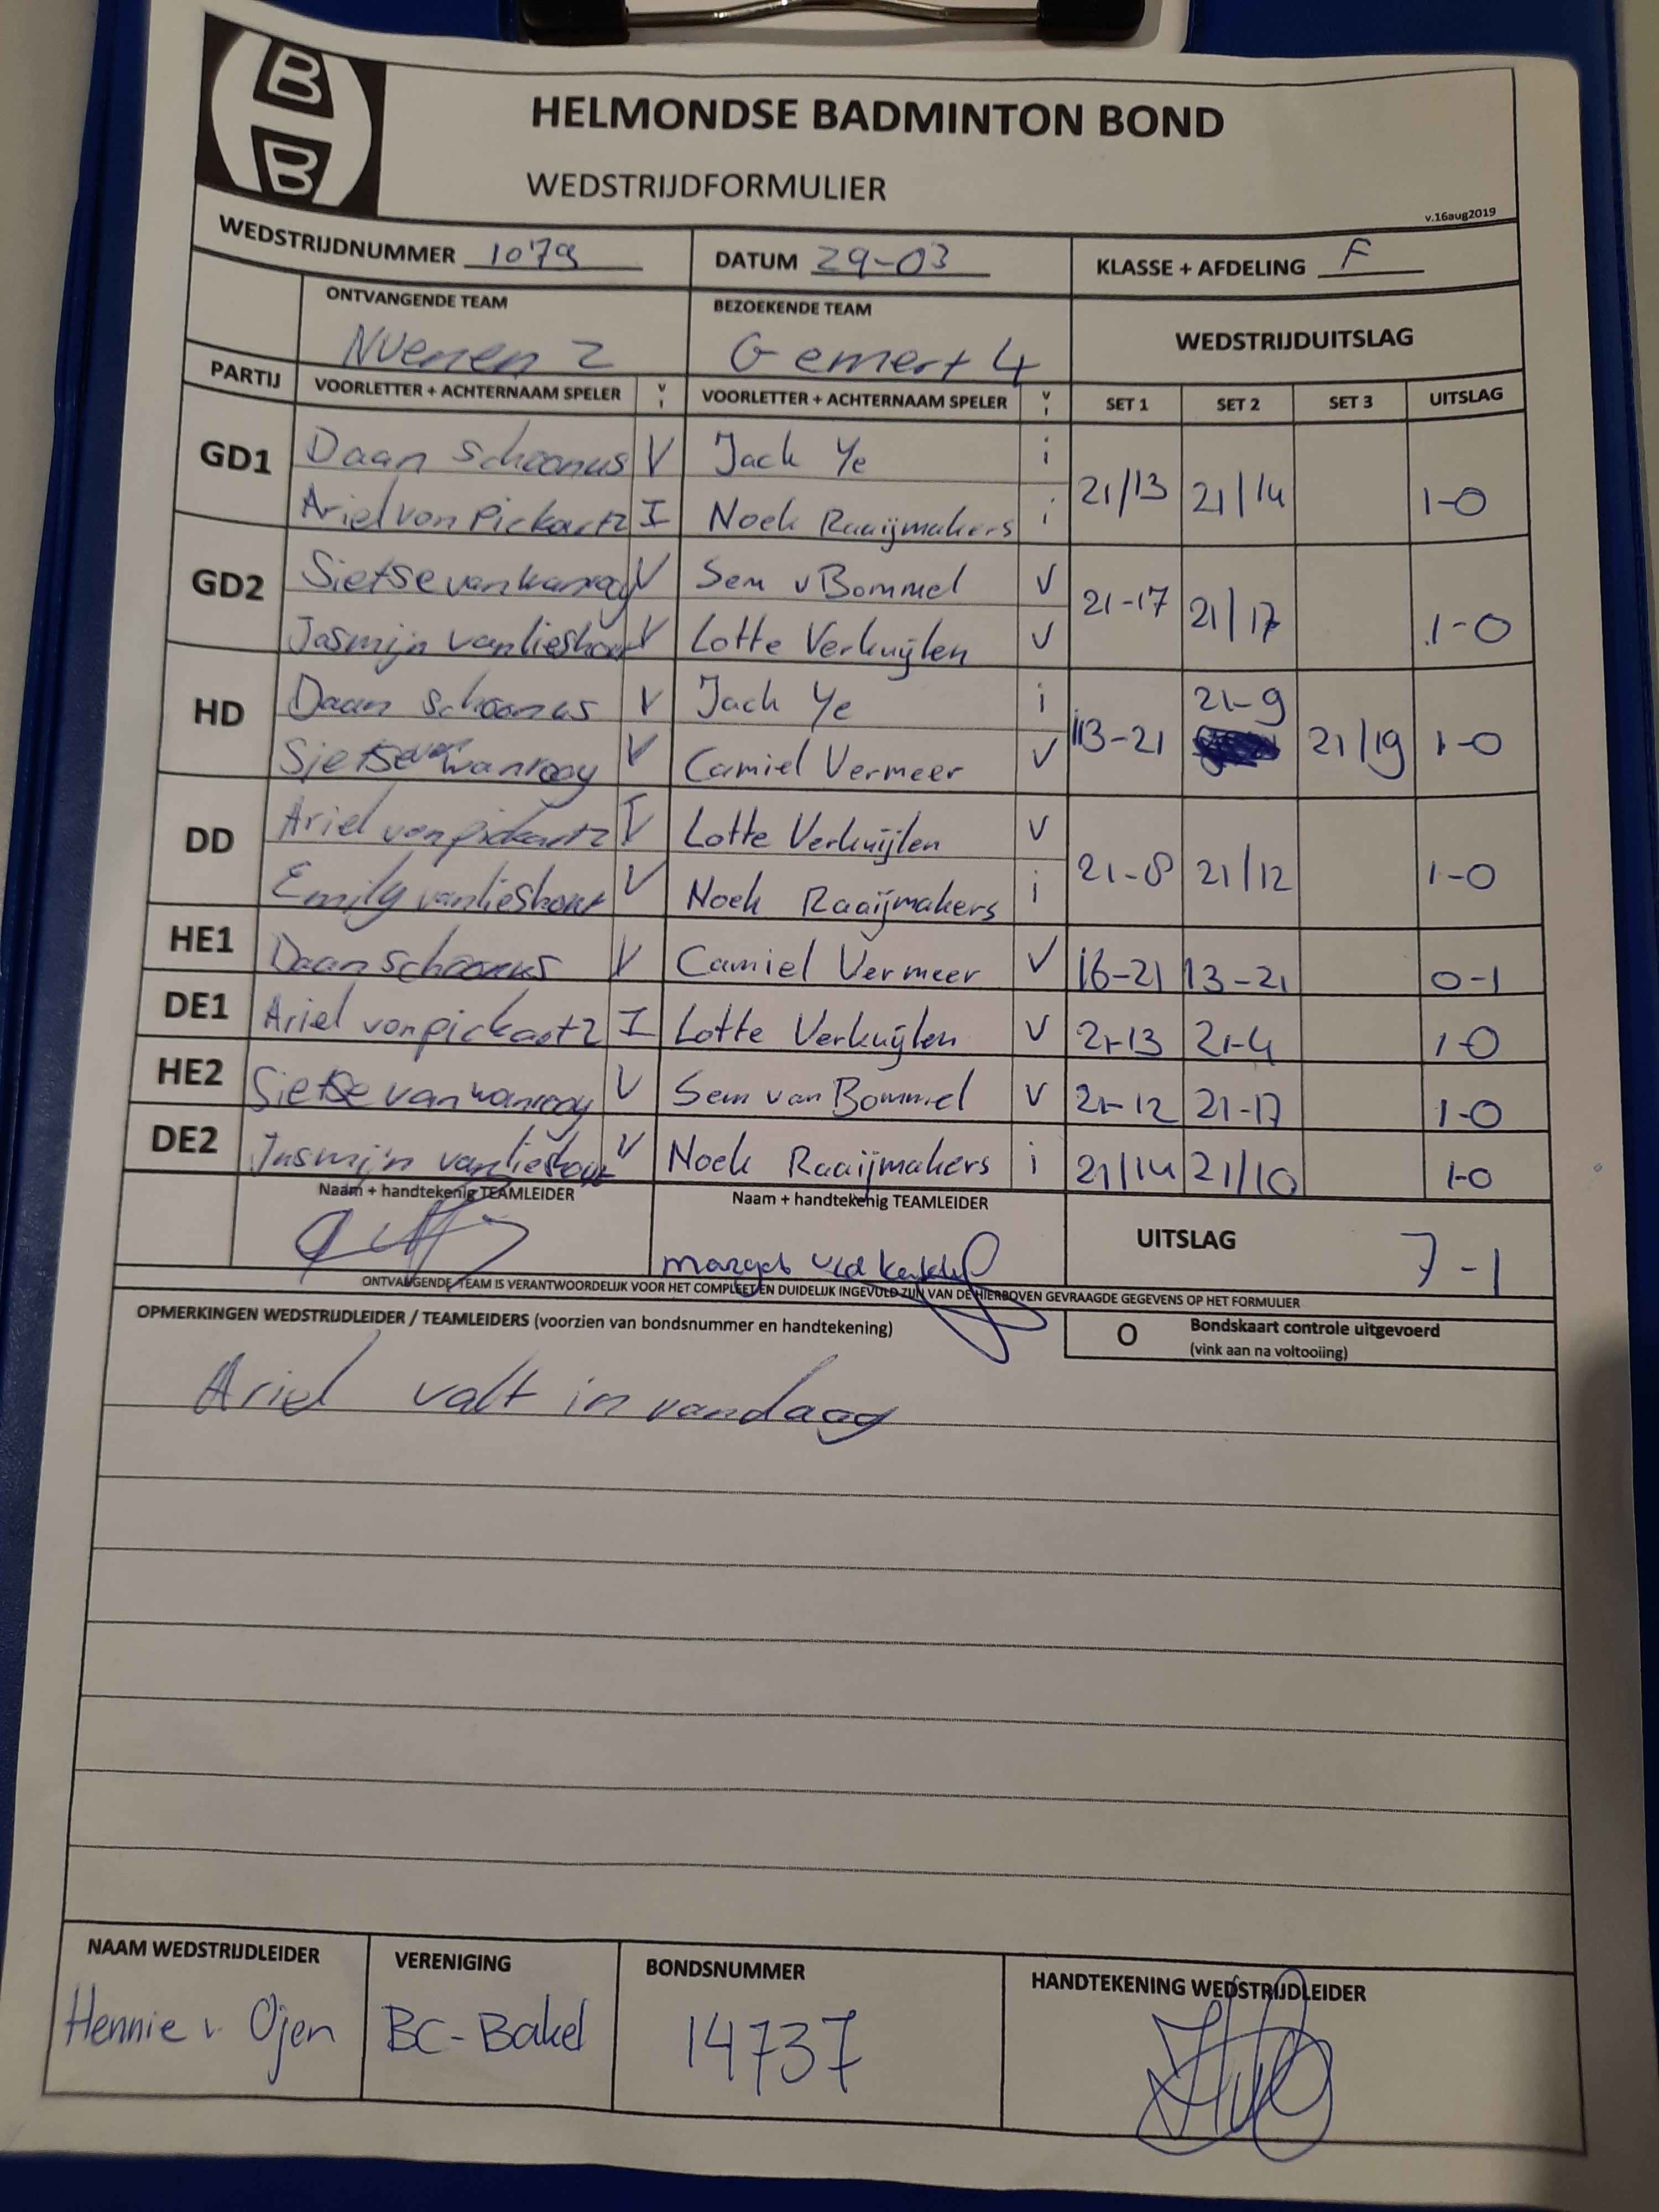 B
B
HELMONDSE BADMINTON BOND
WEDSTRIJDFORMULIER
v.16aug2019
WEDSTRIJDNUMMER 1079 DATUM 29-03 KLASSE + AFDELING F
ONTVANGENDE TEAM BEZOEKENDE TEAM WEDSTRIJDUITSLAG
Nuenen 2 Gemert 4
PARTIJ VOORLETTER + ACHTERNAAM SPELER V I VOORLETTER + ACHTERNAAM SPELER V I SET 1 SET 2 SET 3 UITSLAG
GD1 Daan Schoonus V Jack Ye i 21/13 21/14 1-0
Ariel von Pickartz I Noek Raaijmakers i
GD2 Sietse van wanrooy V Sem v Bommel V 21-17 21/17 1-0
Jasmijn van lieshout V Lotte Verkuijlen V
HD Daan Schoonus V Jack Ye i 13-21 21-9 21/19 1-0
Sietse van wanrooy V Camiel Vermeer V
DD Ariel von pickartz I Lotte Verkuijlen V 21-8 21/12 1-0
Emily van lieshout V Noek Raaijmakers i
HE1 Daan Schoonus V Camiel Vermeer V 16-21 13-21 0-1
DE1 Ariel von pickartz I Lotte Verkuijlen V 21-13 21-4 1-0
HE2 Sietse van wanrooy V Sem van Bommel V 21-12 21-17 1-0
DE2 Jasmijn van lieshout V Noek Raaijmakers i 21/14 21/10 1-0
Naam + handtekenig TEAMLEIDER Naam + handtekenig TEAMLEIDER UITSLAG 7-1
ONTVANGENDE TEAM IS VERANTWOORDELIJK VOOR HET COMPLEET EN DUIDELIJK INGEVULD ZIJN VAN DE HIERBOVEN GEVRAAGDE GEGEVENS OP HET FORMULIER
OPMERKINGEN WEDSTRIJDLEIDER / TEAMLEIDERS (voorzien van bondsnummer en handtekening) O Bondskaart controle uitgevoerd
(vink aan na voltooiing)
Ariel valt in vandaag
NAAM WEDSTRIJDLEIDER VERENIGING BONDSNUMMER HANDTEKENING WEDSTRIJDLEIDER
Hennie v. Ojen BC-Bakel 14737